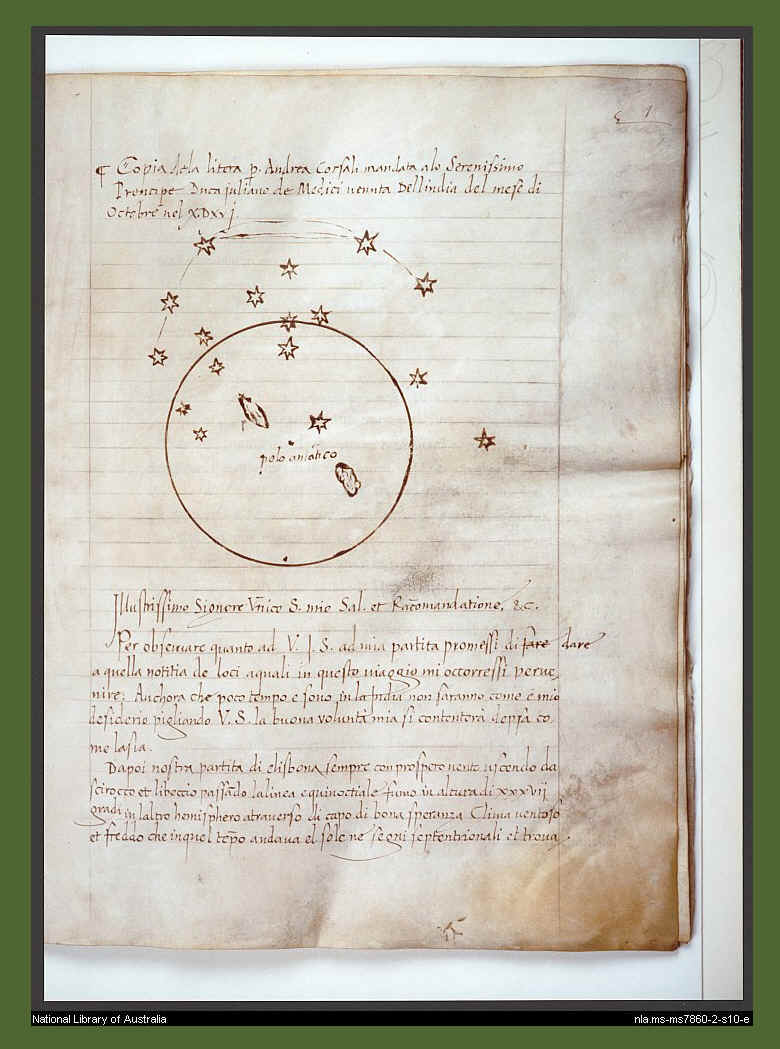 ¶ Copia dela litera p. Andrea Corsali mandata alo Serenissimo
Prencipe Duca juliano de Medici venuta Dellindia del mese di
Octobre nel XDxvj
polo antártico
Illustrissimo Signore Vnico S. mio Sal. et Racomandatione, &c.
Per observare quanto ad V. I. S. ad mia partita promessi di fare dare
a quella notitia de loci aquali in questo viaggio mi occorressi perve
nire; Anchora che poco tempo e sono in la India non saranno come e mio
desiderio pigliando V. S. la buona voluntà mia si contenterà depsa co
me la sia.
Dapoi nostra partita di elisbona sempre con prospero vento uscendo da
scirocco et libeccio passãdo la linea equinoctiale fumo in altura di xxxvij
gradi in laltro hemisphero atraverso di capo di bona speranza Clima ventoso
et freddo che in quel tẽpo andava el sole ne segni septentrionali et trova
National Library of Australia
nla.ms-ms7860-2-s10-e